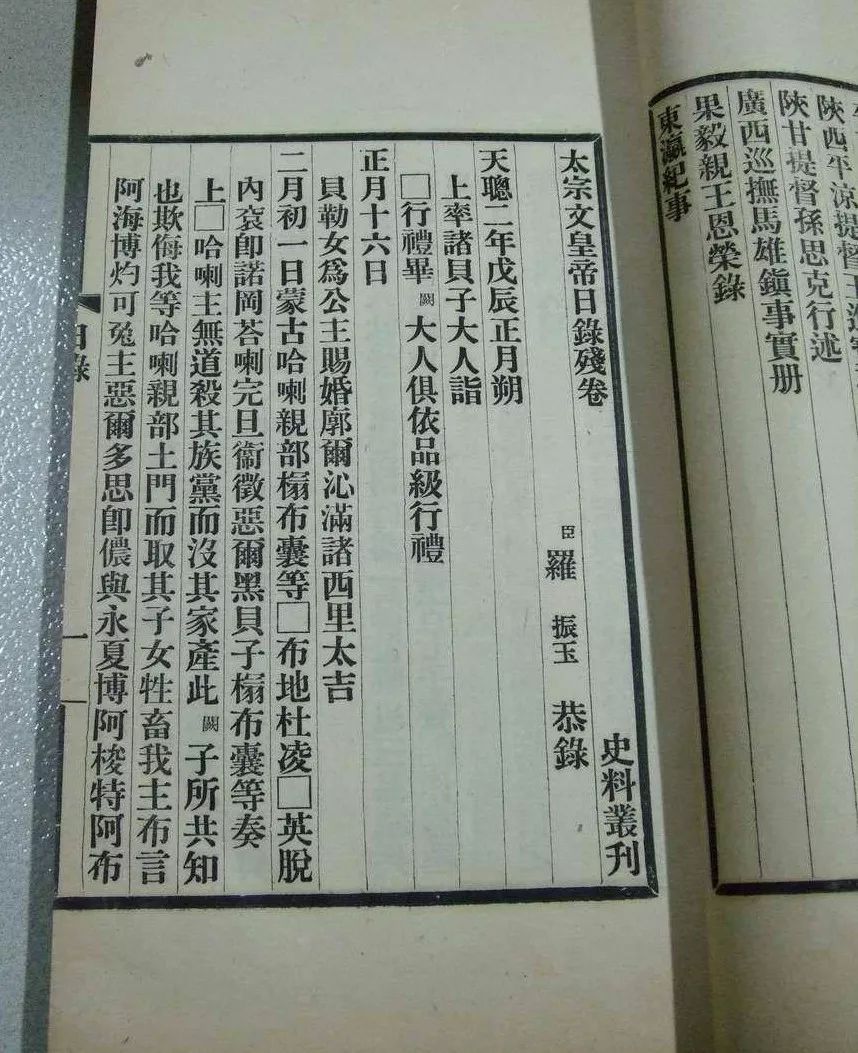 陜西平涼提督王進寶
陜甘提督孫思克行述
廣西巡撫馬雄鎮事實册
果毅親王恩榮錄
東瀛紀事
史料叢刊
太宗文皇帝日錄殘卷
臣羅振玉恭錄
天聰二年戊辰正月朔
上率諸貝子大人詣
□行禮畢闕大人俱依品級行禮
正月十六日
貝勒女爲公主賜婚廓爾沁滿諸西里太吉
二月初一日蒙古哈喇親部榻布囊等□布地杜凌□英脫
內袞卽諾岡荅喇完旦衞徵惡爾黑貝子榻布囊等奏
上□哈喇主無道殺其族黨而沒其家產此闕子所共知
也欺侮我等哈喇親部土門而取其子女牲畜我主布言
阿海博灼可兔主惡爾多思卽儂與永夏博阿梭特阿布
目錄
一